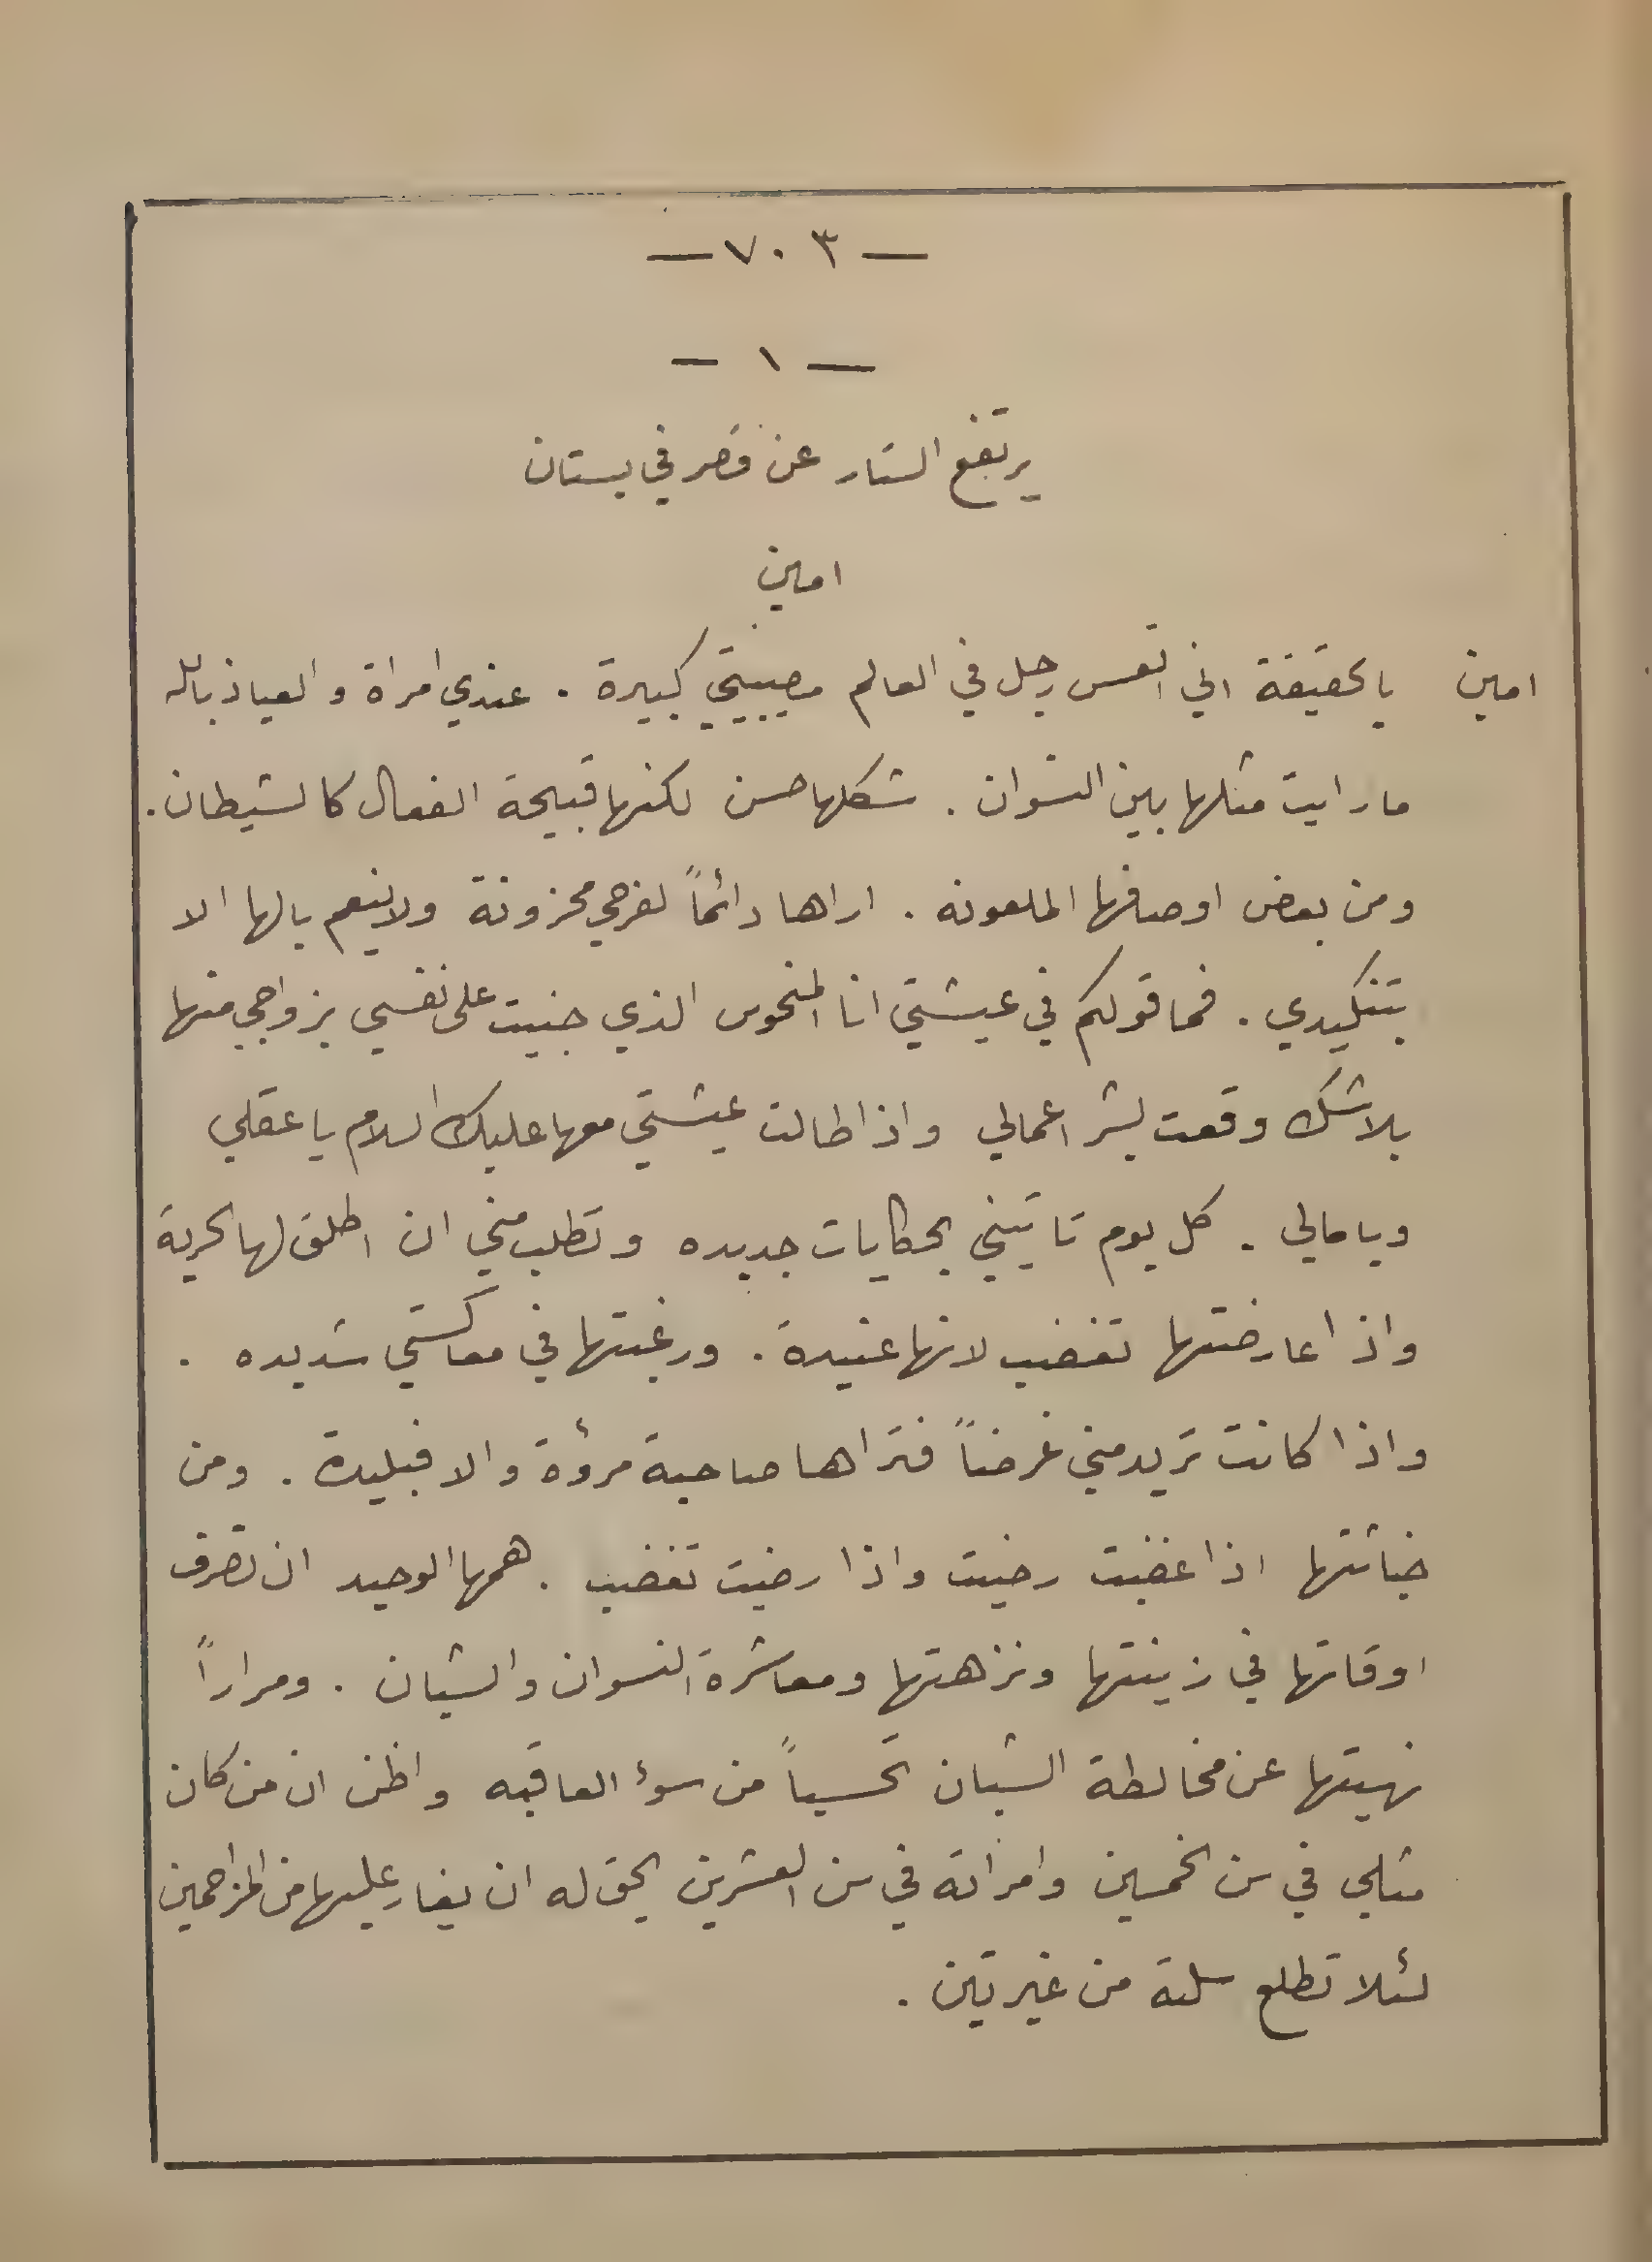 — ٧٠٣ —
— ١ —
يرتفع الستار عن قصر في بستان
امين
امين بالحقيقة اني اتعس رجل في العالم مصيبتي كبيرة . عندي امراة والعياذ بالله
ما رايت مثلها بين النسوان . شكلها حسن لكنها قبيحة الفعال كالشيطان .
ومن بعض اوصافها الملعونه . اراها دائماً لفرحي محزونة ولا ينعم بالها الا
بتنكيدي . فما قولكم في عيشتي انا المنحوس الذي جنيت على نفسي بزواجي منها
بلا شك وقعت بشر اعمالي واذا طالت عيشتي معها عليك السلام يا عقلي
ويا مالي . كل يوم تاتيني بحكايات جديده وتطلب مني ان اطلق لها الحرية
واذا عارضتها تغضب لانها عنيدة . ورغبتها في معاكستي شديده .
واذا كانت تريد مني غرضاً فتراها صاحبة مرؤة والا فبليدة . ومن
خباثتها اذا غضبت رضيت واذا رضيت تغضب . همها الوحيد ان تصرف
اوقاتها في زينتها ونزهتها ومعاشرة النسوان والشبان . ومراراً
نهيتها عن مخالطة الشبان تحسباً من سوء العاقبه واظن ان من كان
مثلي في سن الخمسين وامراته في سن العشرين يحق له ان يغار عليها من المزاحمين
لئلا تطلع سلته من غير تين .